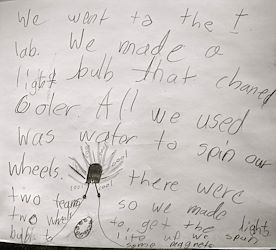 We went to the I.
lab. We made a
light bulb that chaned
coler. All we used
was water to spin our
wheels. there were
two teams so we made
two wheels to get the lights
bulbs to lite up we spun
some magnets